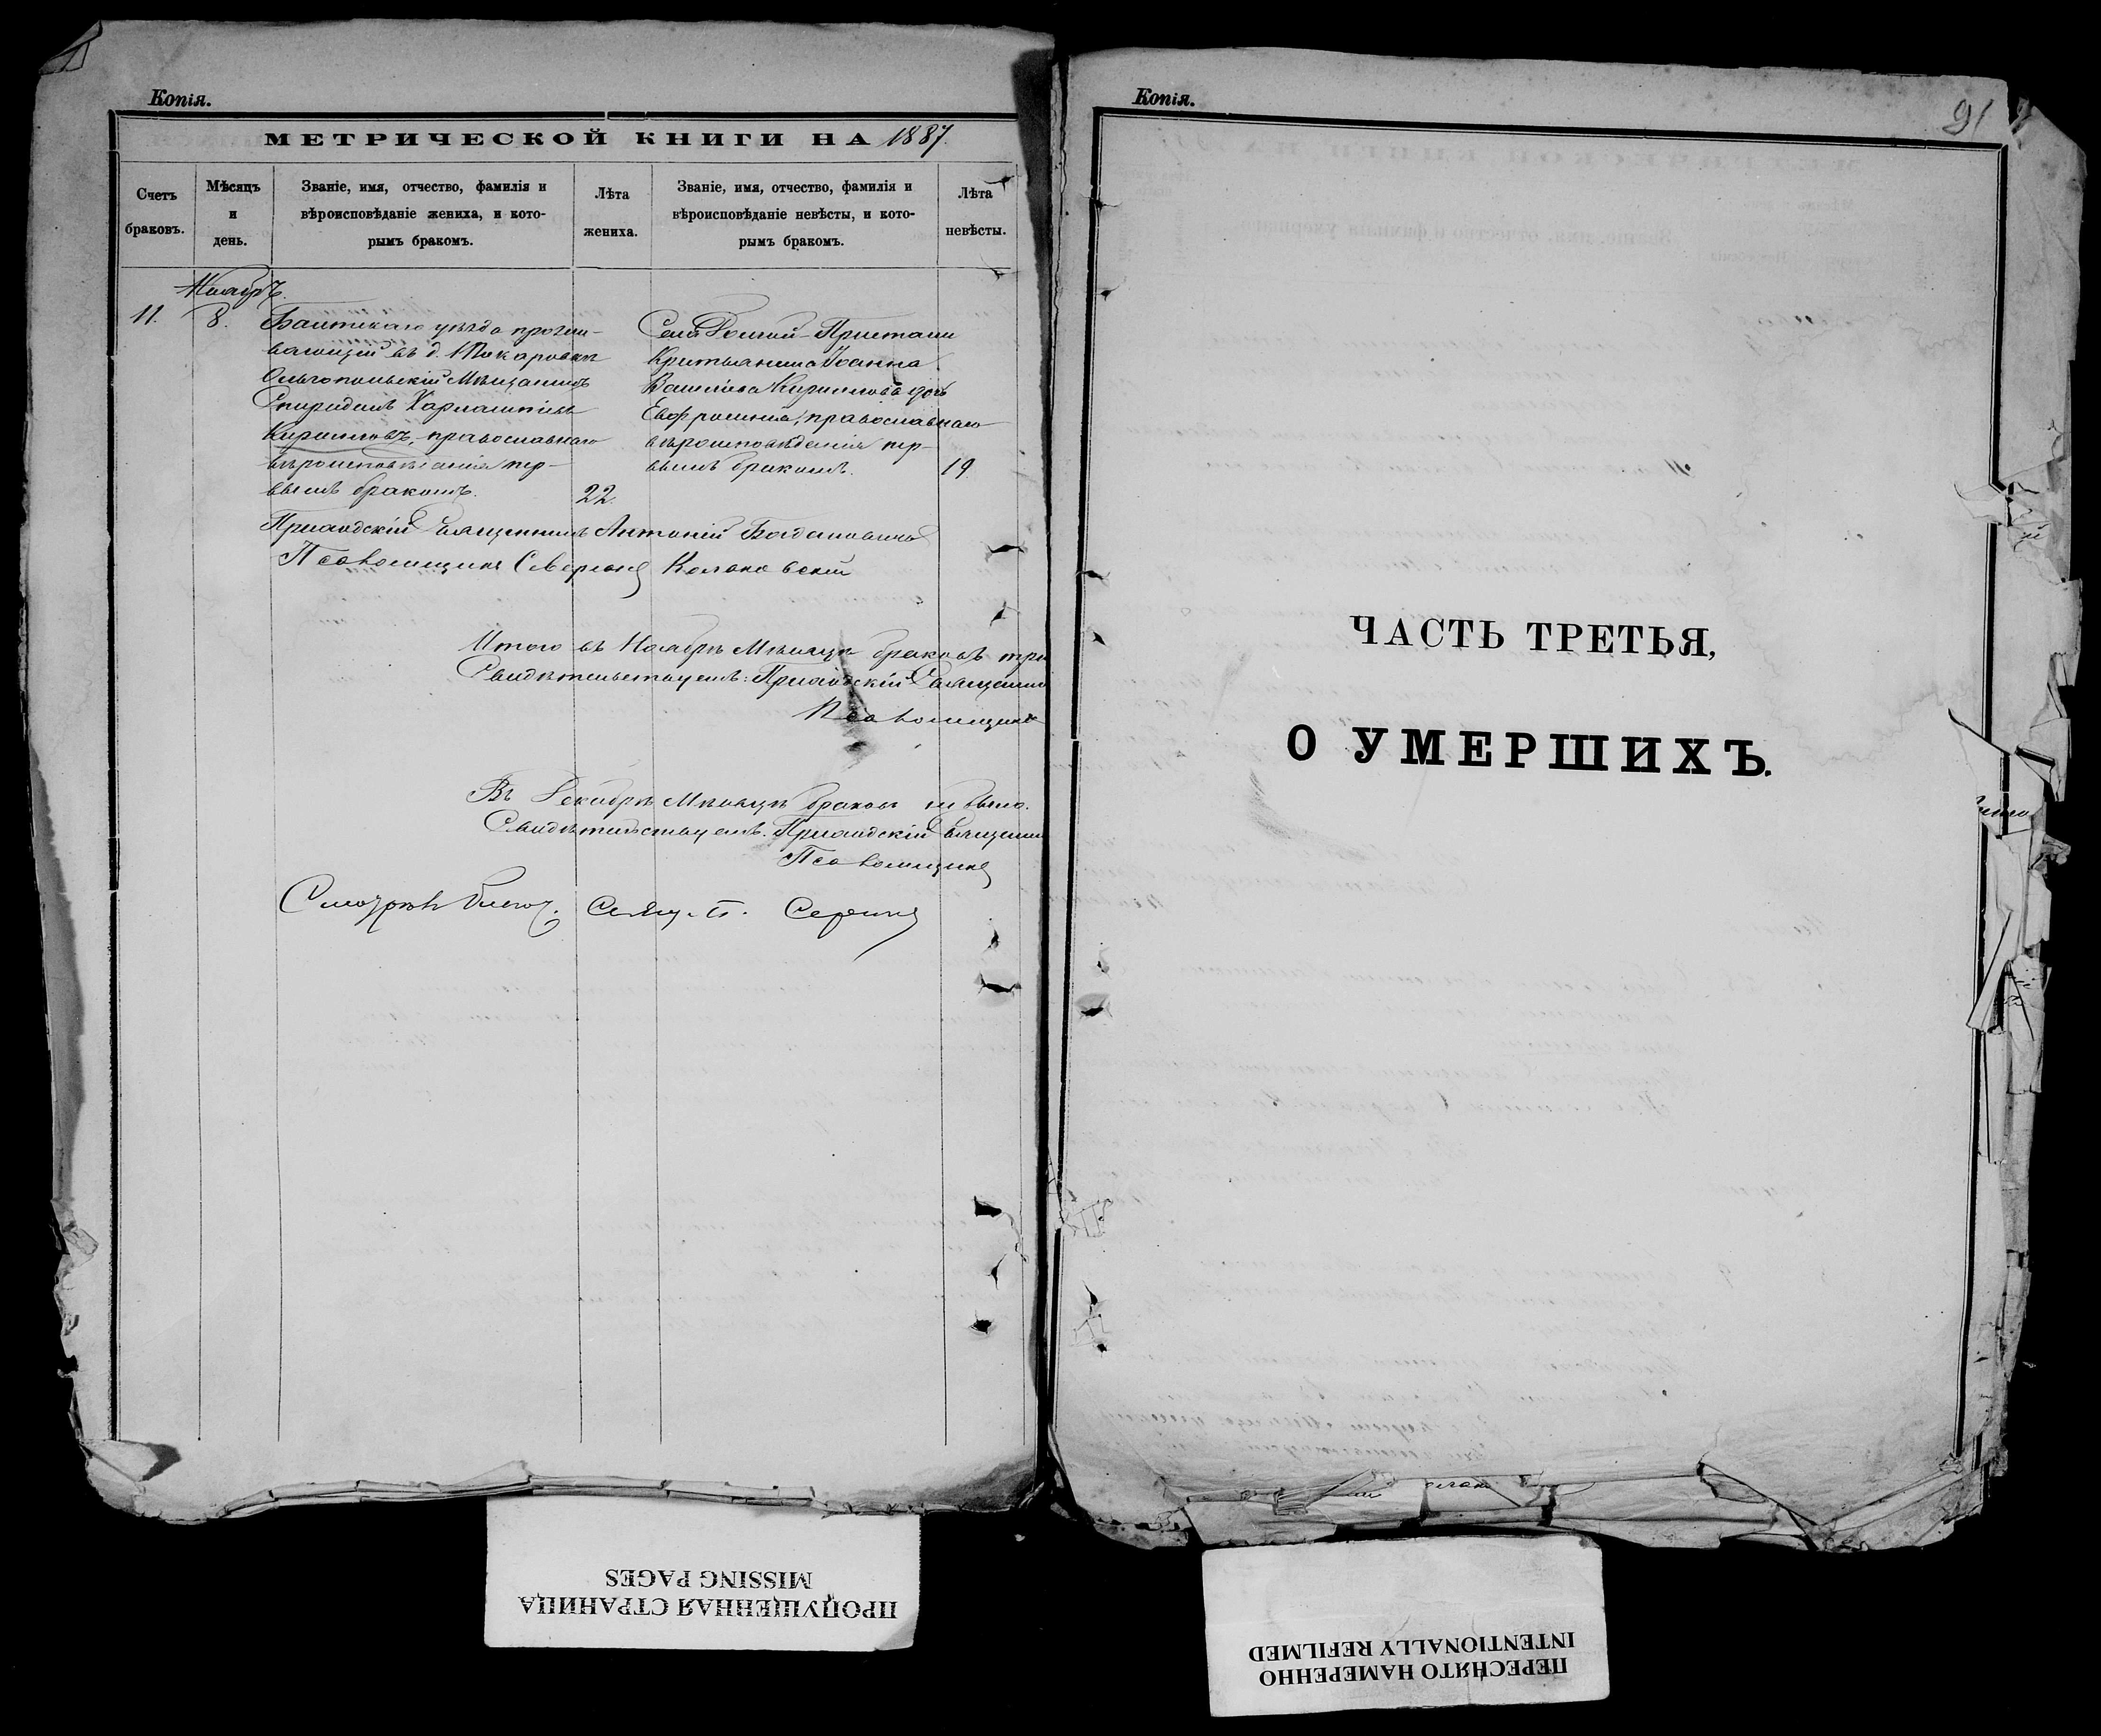 Копія.
МЕТРИЧЕСКОЙ КНИГИ НА 1887.
Счетъ браковъ.
Мѣсяцъ и день.
Званіе, имя, отчество, фамилія и вѣроисповѣданіе жениха, и которымъ бракомъ.
Лѣта жениха.
Званіе, имя, отчество, фамилія и вѣроисповѣданіе невѣсты, и которымъ бракомъ.
Лѣта невѣсты.
Ноябрь.
11.
8.
Балтскаго уѣзда прожи-
вающій въ д. Токаровкѣ
Ольгопольскій Мѣщанинъ
Спиридонъ Харлампіевъ
Кирилловъ, православнаго
вѣроисповѣданія пер-
вымъ бракомъ.
22.
Села Долгой-Пристани
Крестьянина Іоанна
Васильева Кириллова дочь
Евфросинія, православнаго
вѣроисповѣданія пер-
вымъ бракомъ.
19.
Приходскій Священникъ Антоній Богдановичъ
Псаломщикъ Северіанъ
Итого въ Ноябрѣ Мѣсяцѣ браковъ три
Свидѣтельствуемъ: Приходскій Священник
Псаломщикъ
Въ Декабрѣ Мѣсяцѣ браковъ не было.
Свидѣтельствуемъ. Приходскій Священни
Псаломщикъ
Смотрѣлъ Благоч. Свящ. П.
Копія.
91
ЧАСТЬ ТРЕТЬЯ,
О УМЕРШИХЪ.
ПРОПУЩЕННАЯ СТРАНИЦА
MISSING PAGES
ПЕРЕСНЯТО НАМЕРЕННО
INTENTIONALLY REFILMED